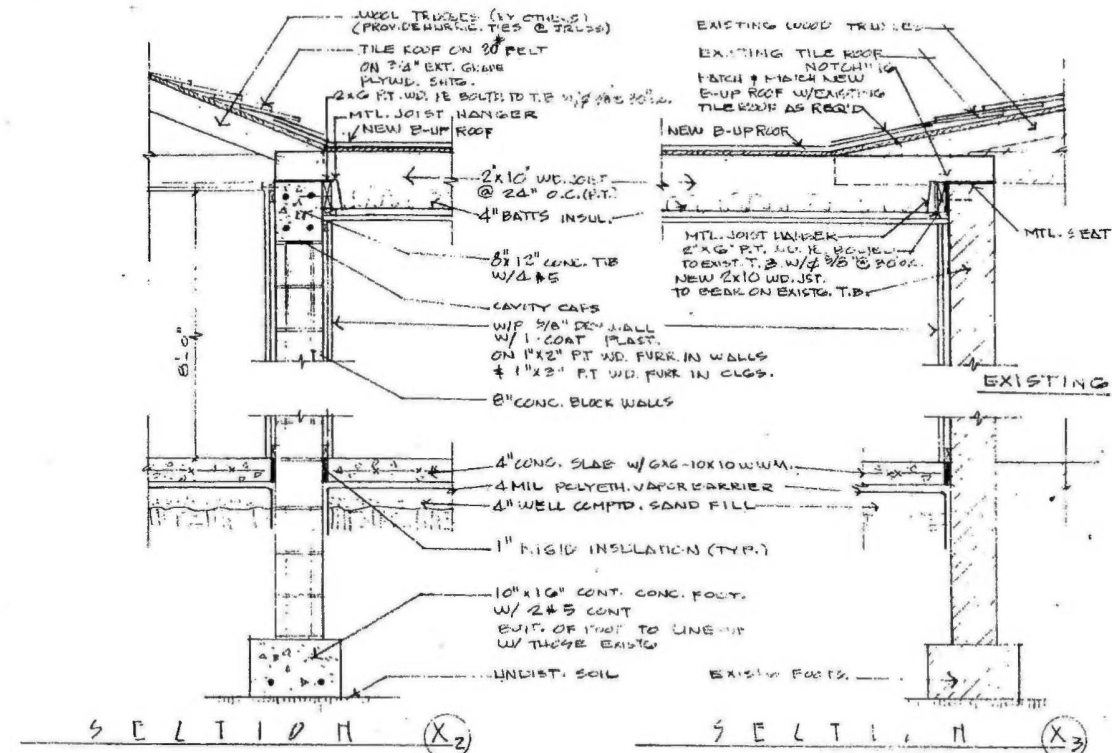 WOOD TRUSSES (BY OTHERS)
(PROVIDE HURRIC. TIES @ TRUSS)
TILE ROOF ON 30# FELT
ON 3/4" EXT. GRADE
PLYWD. SHTG.
2x6 P.T. WD. LE BOLTD TO T.B W/ø 5/8 @ 30"o.c.
MTL. JOIST HANGER
NEW B-UP ROOF
2"x10" WD. JOIST
@ 24" O.C. (P.T.)
4" BATTS INSUL.
8"x12" CONC. T.B
W/4 #5
CAVITY CAPS
W/P 5/8" DRYWALL
W/ 1 COAT PLAST.
ON 1"x2" P.T WD. FURR. IN WALLS
& 1"x3" P.T WD. FURR IN CLGS.
8" CONC. BLOCK WALLS
8'-0"
4" CONC. SLAB W/ 6x6-10x10 W.W.M.
4 MIL POLYETH. VAPOR BARRIER
4" WELL COMPTD. SAND FILL
1" RIGID INSULATION (TYP.)
10"x16" CONT. CONC. FOOT.
W/ 2 #5 CONT
OF FOOT TO LINE-UP
W/ THOSE EXISTG
UNDIST. SOIL
SECTION X2
EXISTING WOOD TRUSSES
EXISTING TILE ROOF
NOTCHING
PATCH & MATCH NEW
B-UP ROOF W/EXISTING
TILE ROOF AS REQ'D
NEW B-UP ROOF
MTL. SEAT
MTL. JOIST HANGER
2"x6" P.T. WD. LE BOLTED
TO EXIST. T.B W/ø 5/8" @ 30"O.C.
NEW 2x10 WD. JST.
TO BEAR ON EXISTG. T.B.
EXISTING
EXISTG FOOTG.
SECTION X3